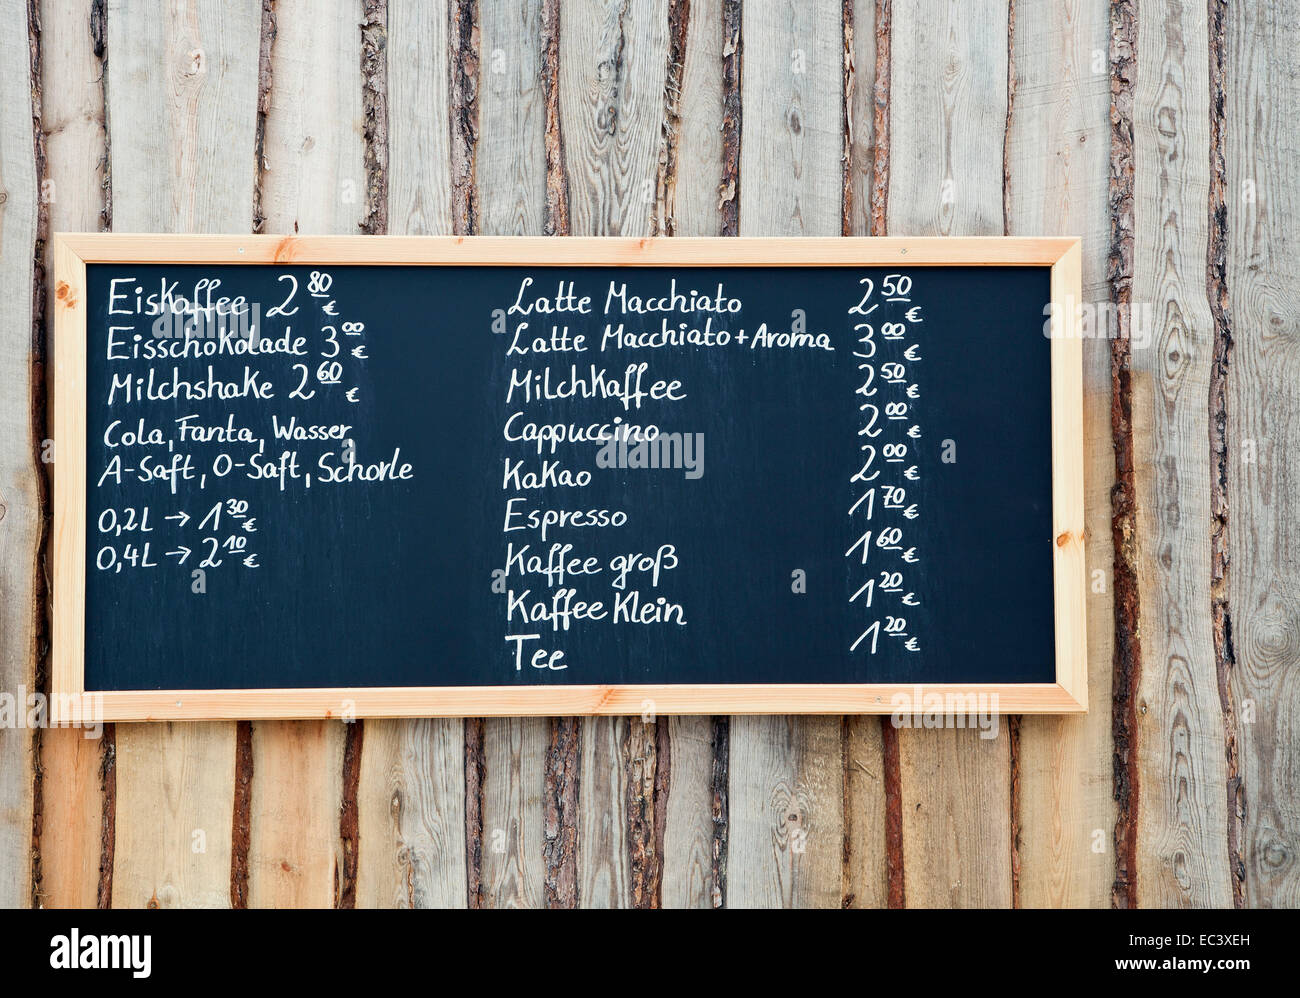 Eiskaffee 2 80 €
Eisschokolade 3 00 €
Milchshake 2 60 €
Cola, Fanta, Wasser,
A-Saft, O-Saft, Schorle
0,2L → 1 30 €
0,4L → 2 10 €
Latte Macchiato 2 50 €
Latte Macchiato + Aroma 3 00 €
Milchkaffee 2 50 €
Cappuccino 2 00 €
Kakao 2 00 €
Espresso 1 70 €
Kaffee groß 1 60 €
Kaffee Klein 1 20 €
Tee 1 20 €
a alamy stock photo
EC3XEH
www.alamy.com